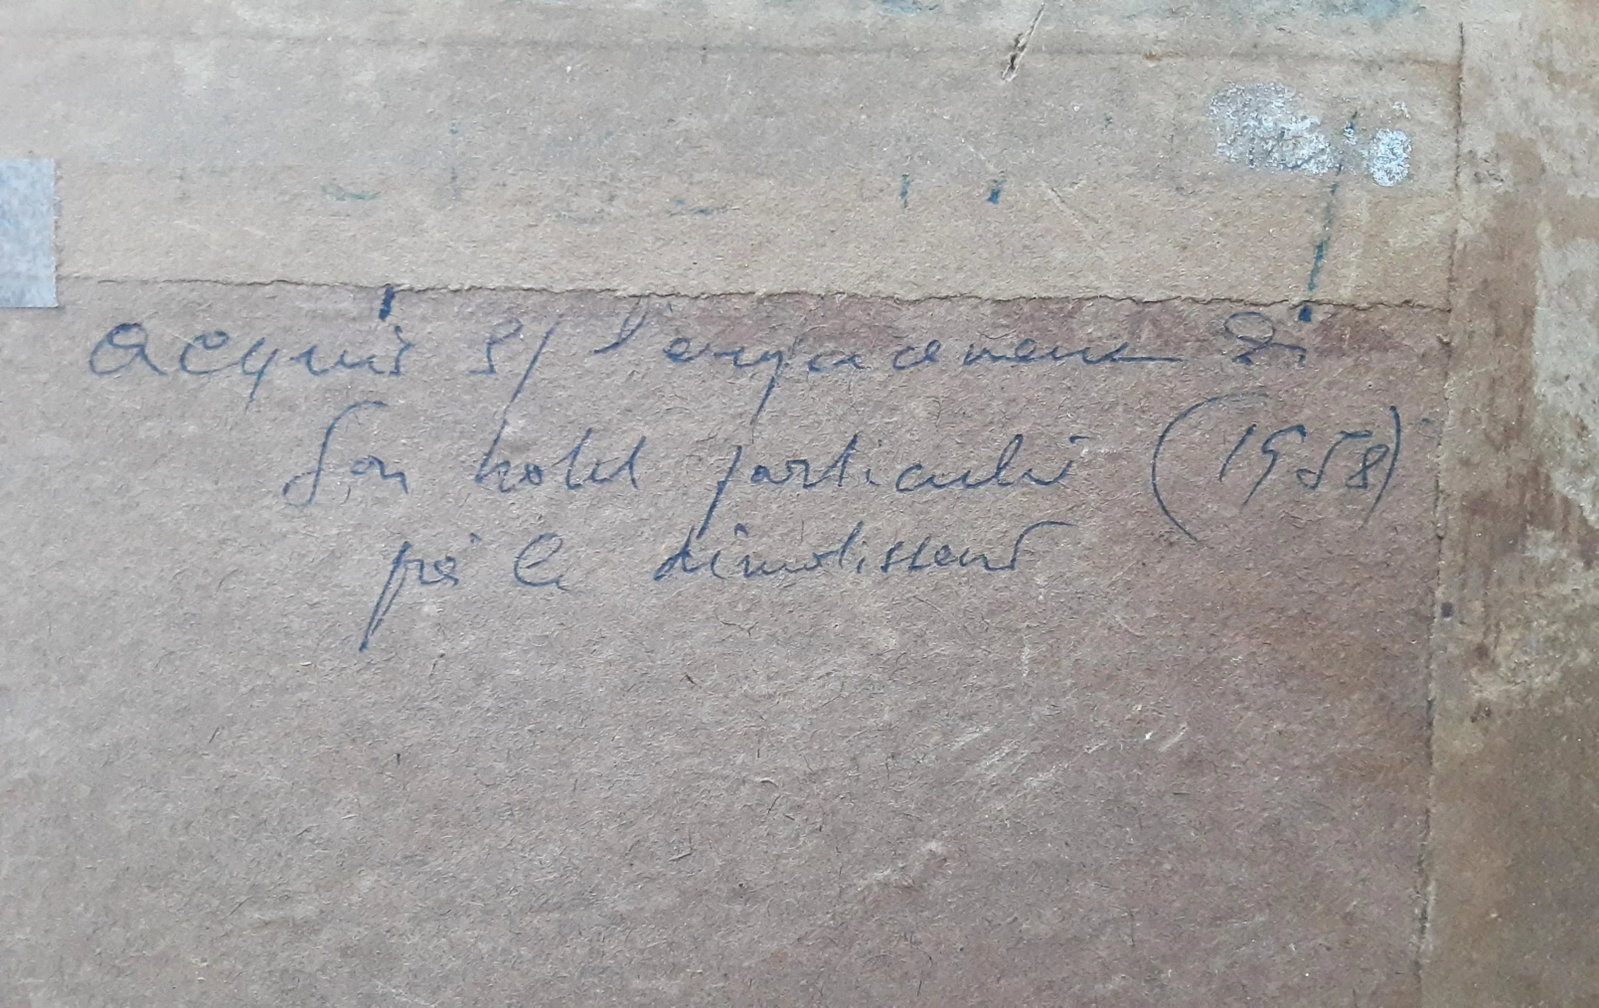 acquis s/ l'emplacement de
son hotel particulier (1958)
par le démolisseur